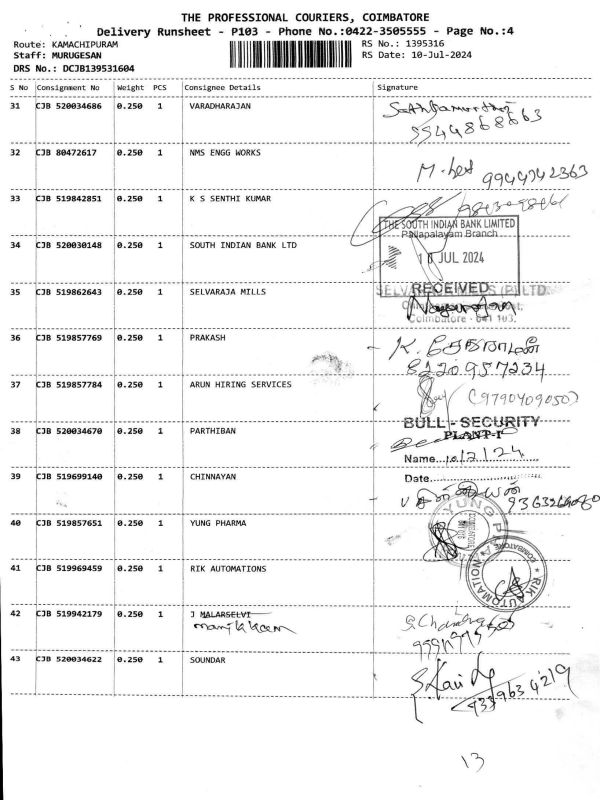 THE PROFESSIONAL COURIERS, COIMBATORE
Delivery Runsheet - P103 - Phone No.:0422-3505555 - Page No.:4
Route: KAMACHIPURAM
RS No.: 1395316
Staff: MURUGESAN
RS Date: 10-Jul-2024
DRS No.: DCJB139531604
S No Consignment No Weight PCS Consignee Details Signature
31 CJB 520034686 0.250 1 VARADHARAJAN
32 CJB 80472617 0.250 1 NMS ENGG WORKS
9944742363
33 CJB 519842851 0.250 1 K S SENTHI KUMAR
THE SOUTH INDIAN BANK LIMITED
Pallapalayam Branch
34 CJB 520030148 0.250 1 SOUTH INDIAN BANK LTD
10 JUL 2024
RECEIVED
35 CJB 519862643 0.250 1 SELVARAJA MILLS
Coimbatore - 641 103.
36 CJB 519857769 0.250 1 PRAKASH
8220957234
37 CJB 519857784 0.250 1 ARUN HIRING SERVICES
(9790409050)
BULL - SECURITY
PLANT-I
38 CJB 520034670 0.250 1 PARTHIBAN
Name...10/7/24
39 CJB 519699140 0.250 1 CHINNAYAN
Date
40 CJB 519857651 0.250 1 YUNG PHARMA
YUNG
COIMBATORE
41 CJB 519969459 0.250 1 RIK AUTOMATIONS
RIK AUTOMATION
COIMBATORE
42 CJB 519942179 0.250 1 J MALARSELVI
manikkam
43 CJB 520034622 0.250 1 SOUNDAR
13